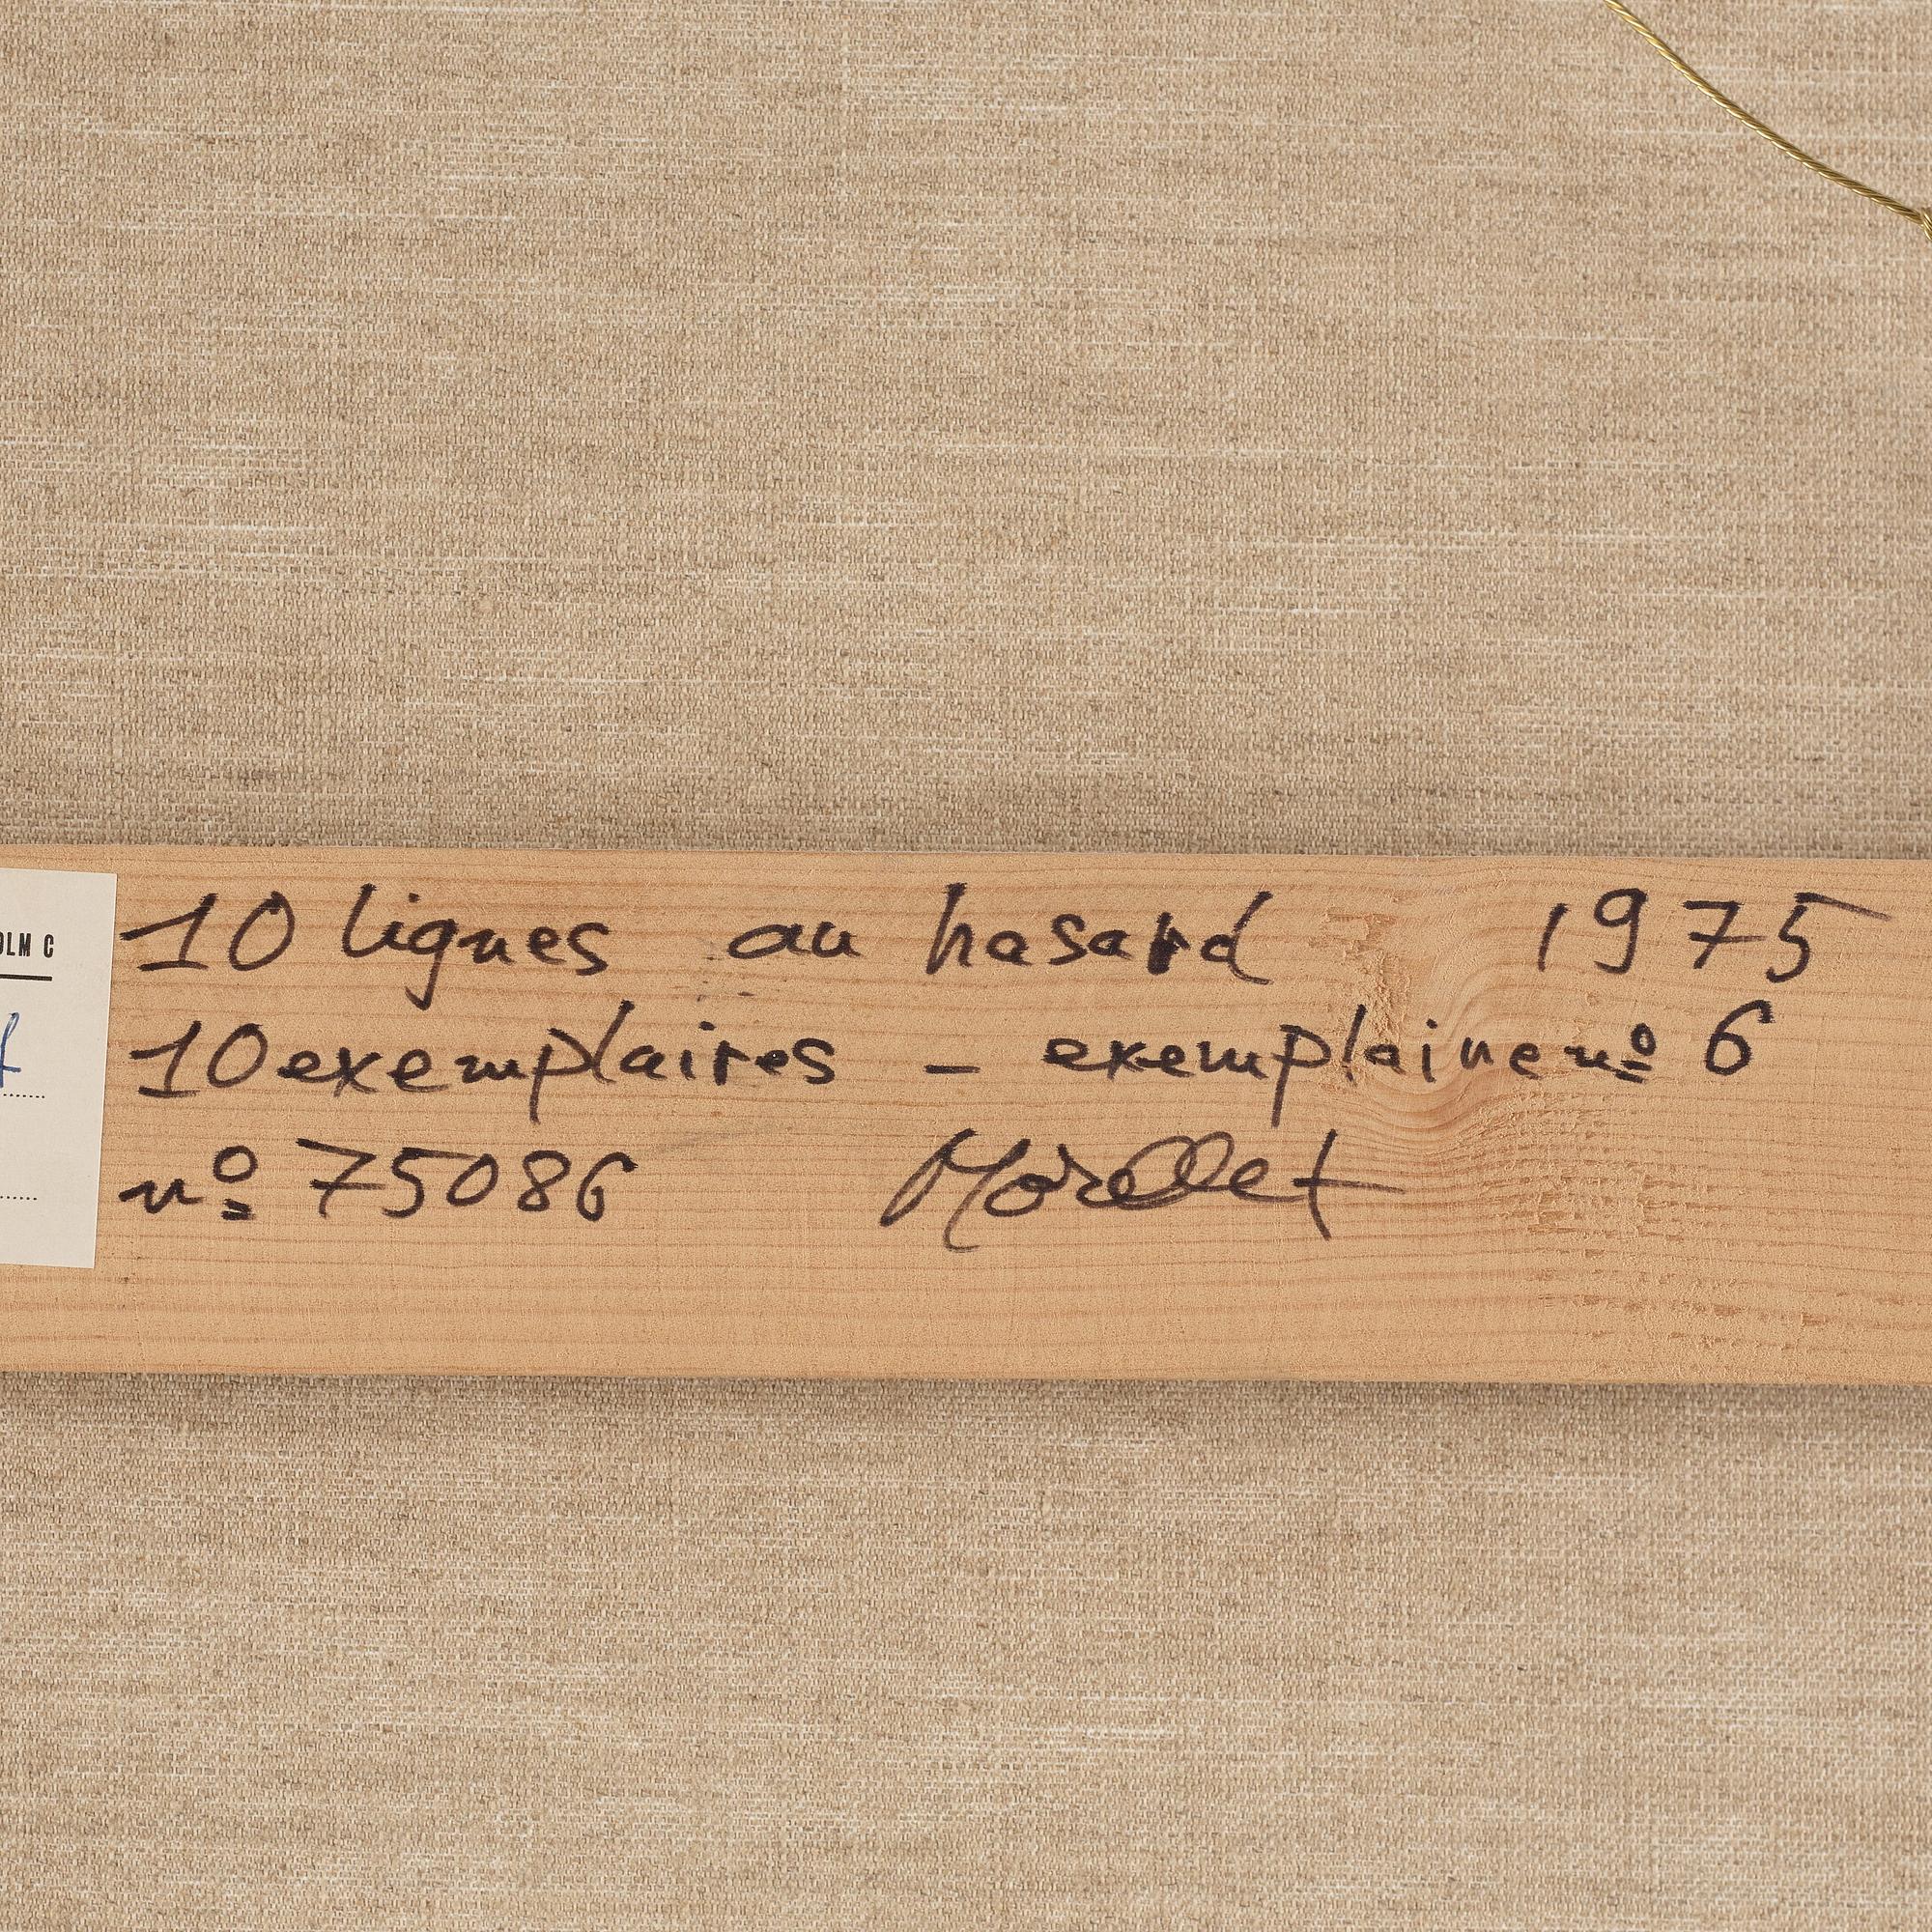 10 lignes au hasard 1975
10 exemplaires - exemplaire nº 6
nº 75086 Morellet
OLM C